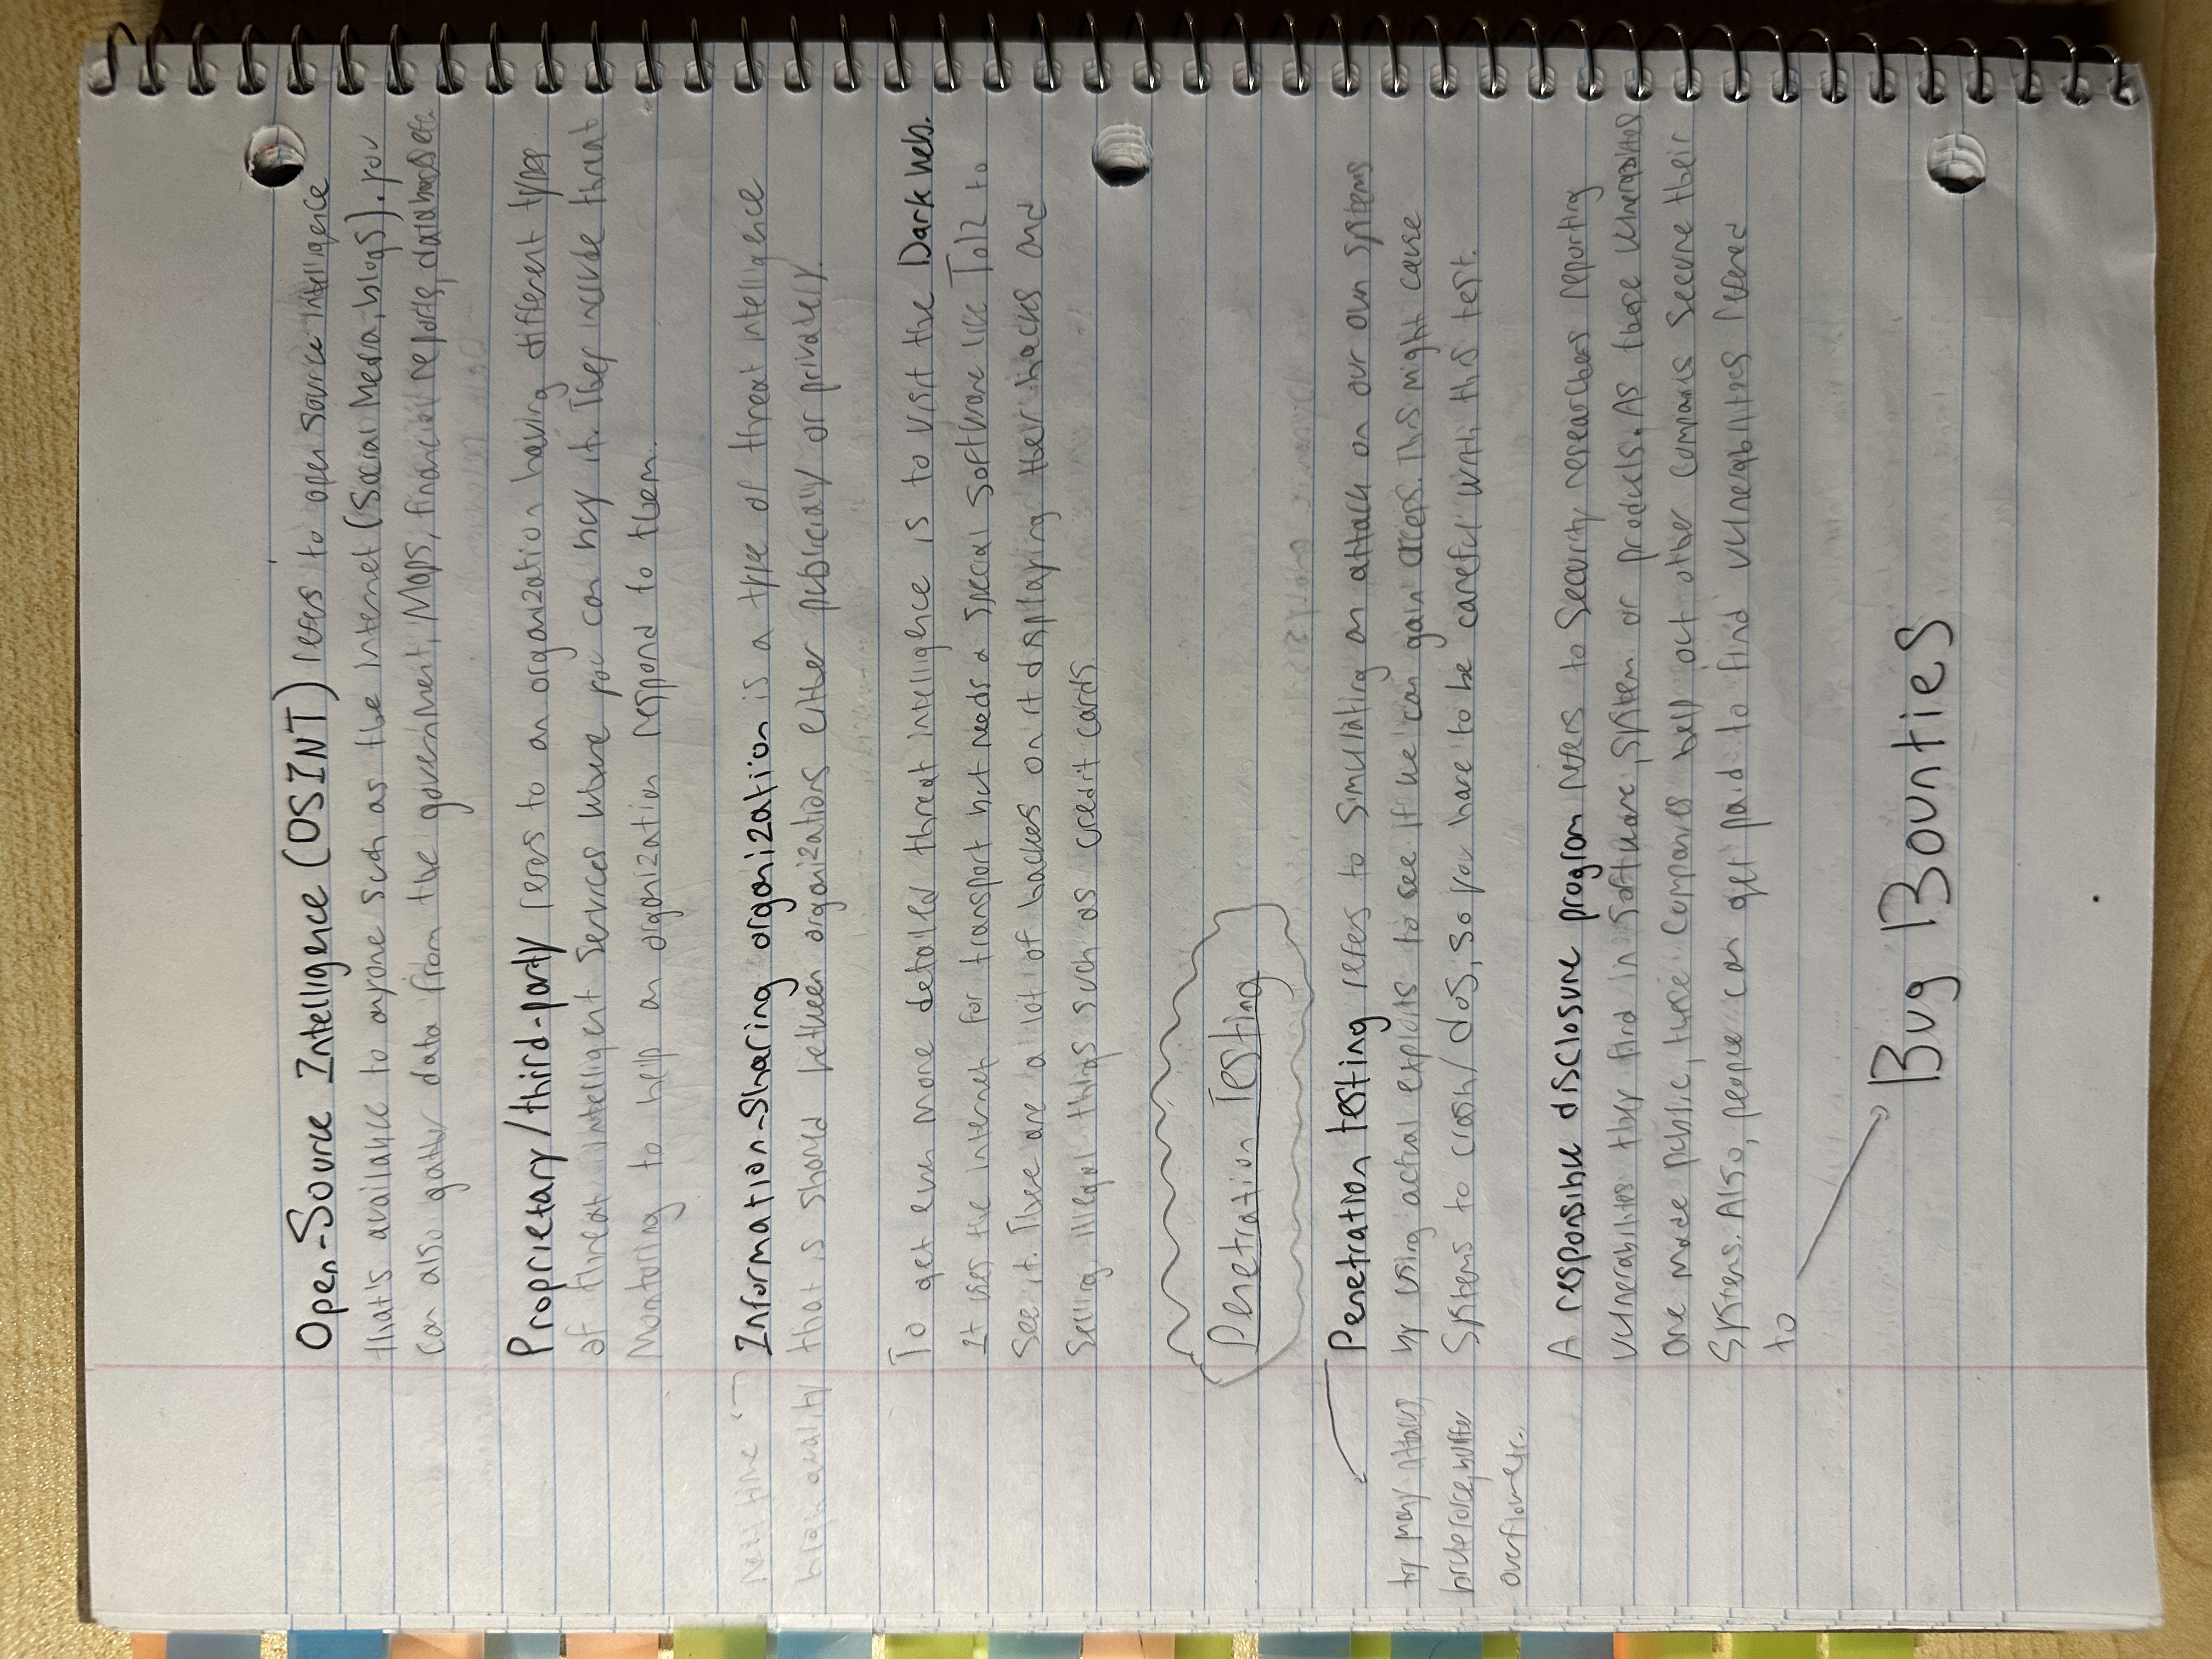 Open-Source Intelligence (OSINT) refers to open source intelligence
that's available to anyone such as the internet (Social Media, blogs). you
can also gather data from the government, Maps, financial reports, databases etc.
Proprietary/third-party refers to an organization having different types
of threat intelligent services where you can buy it. They include threat
Monitoring to help an organization respond to them.
real time
Information-Sharing organization is a type of threat intelligence
high quality
that is shared between organizations either publicially or privately.
To get even more detailed threat intelligence is to visit the Dark web.
It uses the internet for transport but needs a special software like TOR to
see it. There are a lot of hackers on it displaying their hacks and
selling illegal things such as credit cards.
Penetration Testing
Penetration testing refers to simulating an attack on our own systems
try many attacks,
by using actual exploits to see if we can gain access. This might cause
bruteforce, buffer
systems to crash/dos, so you have to be careful with this test.
overflow etc..
A responsible disclosure program refers to security researchers reporting
vulnerabilities they find in software, system or products. As these vulnerabilities
are made public, these companies help out other companies secure their
systems. Also, people can get paid to find vulnerabilities refered
to
Bug Bounties